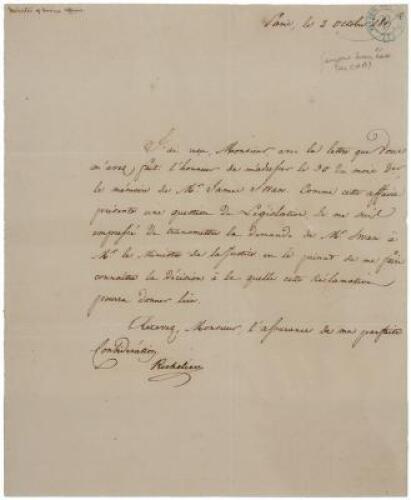 Paris, le 2 octobre
J'ai reçu, Monsieur avec la lettre que vous
m'avez fait l'honneur de m'adresser le 30 du mois der
le mémoire de Mr. James Swan. Comme cette affaire
présente une question de Législation je me suis
empressé de transmettre la demande de Mr. Swan à
Mr. le Ministre de la Justice en le priant de me faire
connaître la décision à la quelle cette Réclamation
pourra donner lieu.
Recevez, Monsieur, l'assurance de ma parfaite
Considération
Richelieu